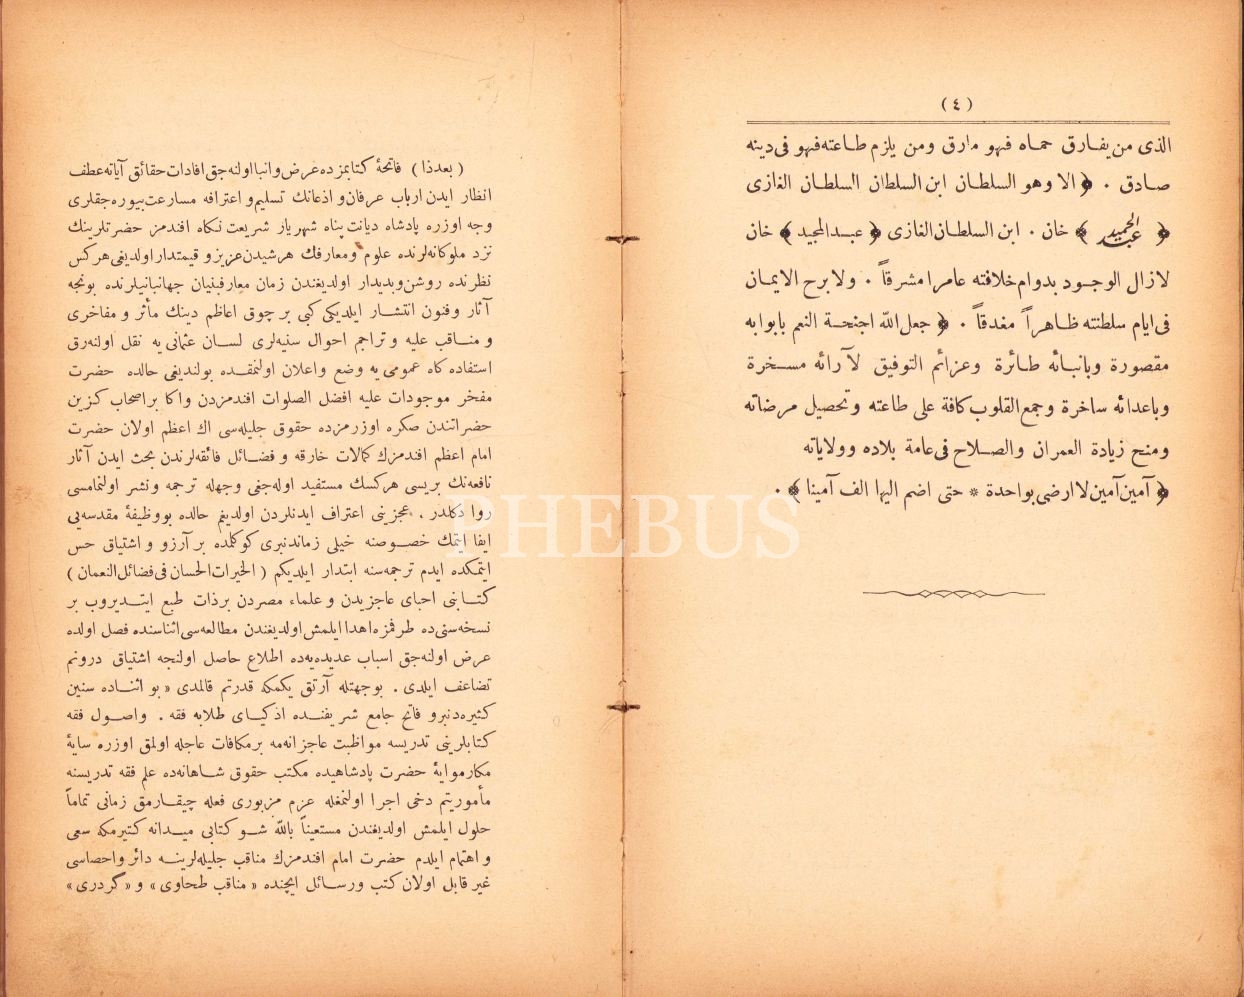 ( ٤ )
الذی من یفارق حماه فهو مارق ومن یلزم طاعته فهو فی دینه
صادق . ﴿ الا وهو السلطان ابن السلطان السلطان الغازی
﴿ عبدالحمید ﴾ خان . ابن السلطان الغازی ﴿ عبدالمجید ﴾ خان
لازال الوجود بدوام خلافته عامرا مشرقاً . ولا برح الایمان
فی ایام سلطنته ظاهراً مغدقاً . ﴿ جعل الله اجنحة النعم بابوابه
مقصورة وبانبائه طائرة وعزائم التوفیق لآرائه مسخرة
وباعدائه ساخرة وجمع القلوب کافة علی طاعته وتحصیل مرضاته
ومنح زیادة العمران والصلاح فی عامة بلاده وولایاته
﴿ آمین آمین لا ارضی بواحدة * حتی اضم الیها الف آمینا ﴾ .
( بعدذا ) فاتحهٔ کتابمزده عرض وانبا اولنه‌جق افادات حقائق آیاته عطف
انظار ایدن ارباب عرفان و اذعانك تسلیم و اعترافه مسارعت بیوره جقلری
وجه اوزره پادشاه دیانت پناه شهریار شریعت نکاه افندمز حضرتلرینك
نزد ملوکانه‌لرنده علوم ومعارفك هر شیدن عزیز و قیمتدار اولدیغی هرکس
نظرنده روشن وبدیدار اولدیغندن زمان معارفبنیان جهانبانیلرنده بونجه
آثار وفنون انتشار ایلدیکی کبی بر چوق اعاظم دینك مأثر و مفاخری
و مناقب علیه و تراجم احوال سنیه‌لری لسان عثمانی یه نقل اولنه‌رق
استفاده کاه عمومی یه وضع واعلان اولنمقده بولندیغی حالده حضرت
مفخر موجودات علیه افضل الصلوات افندمزدن واکا بر اصحاب کزین
حضراتندن صکره اوزرمزده حقوق جلیله‌سی اك اعظم اولان حضرت
امام اعظم افندمزك کمالات خارقه و فضائل فائقه‌لرندن بحث ایدن آثار
نافعه‌نك بریسی هرکسك مستفید اوله‌جغی وجهله ترجمه ونشر اولنمامسی
روا دکلدر . عجزینی اعتراف ایدنلردن اولدیغم حالده بووظیفهٔ مقدسه‌یی
ایفا ایتمك خصوصنه خیلی زماندنبری کوکلمده بر آرزو و اشتیاق حس
ایتمکده ایدم ترجمه‌سنه ابتدار ایلدیکم ( الخیرات الحسان فی فضائل النعمان )
کتابنی احبای عاجزیدن و علماء مصردن برذات طبع ایتدیروب بر
نسخه‌سنی ده طرفمزه اهدا ایلمش اولدیغندن مطالعه‌سی اثناسنده فصل اولده
عرض اولنه‌جق اسباب عدیده‌یه‌ده اطلاع حاصل اولنجه اشتیاق درونم
تضاعف ایلدی . بوجهتله آرتق یکمکه قدرتم قالمدی « بو اثناده سنین
کثیره‌دنبرو فاتح جامع شریفنده اذکیای طلابه فقه . واصول فقه
کتابلرینی تدریسه مواظبت عاجزانه‌مه برمکافات عاجله اولمق اوزره سایهٔ
مکارموایهٔ حضرت پادشاهیده مکتب حقوق شاهانه‌ده علم فقه تدریسنه
مأموریتم دخی اجرا اولنمغله عزم مزبوری فعله چیقارمق زمانی تماماً
حلول ایلمش اولدیغندن مستعیناً بالله شو کتابی میدانه کتیرمکه سعی
و اهتمام ایلدم حضرت امام افندمزك مناقب جلیله‌لرینه دائر واحصاسی
غیر قابل اولان کتب ورسائل ایچنده « مناقب طحاوی » و « کردری »
PHEBUS